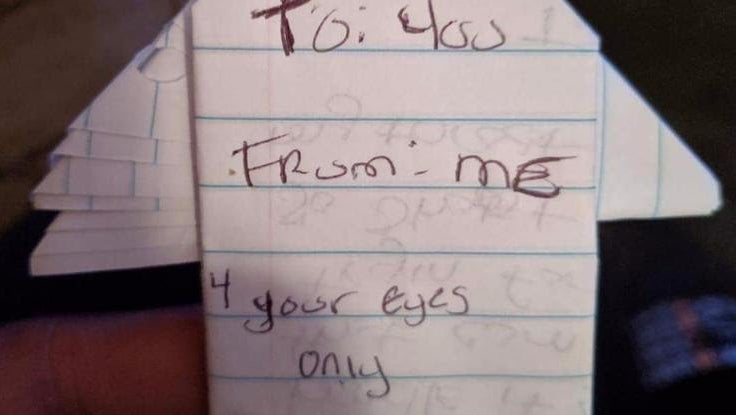 To: You
From: ME
4 your eyes
only